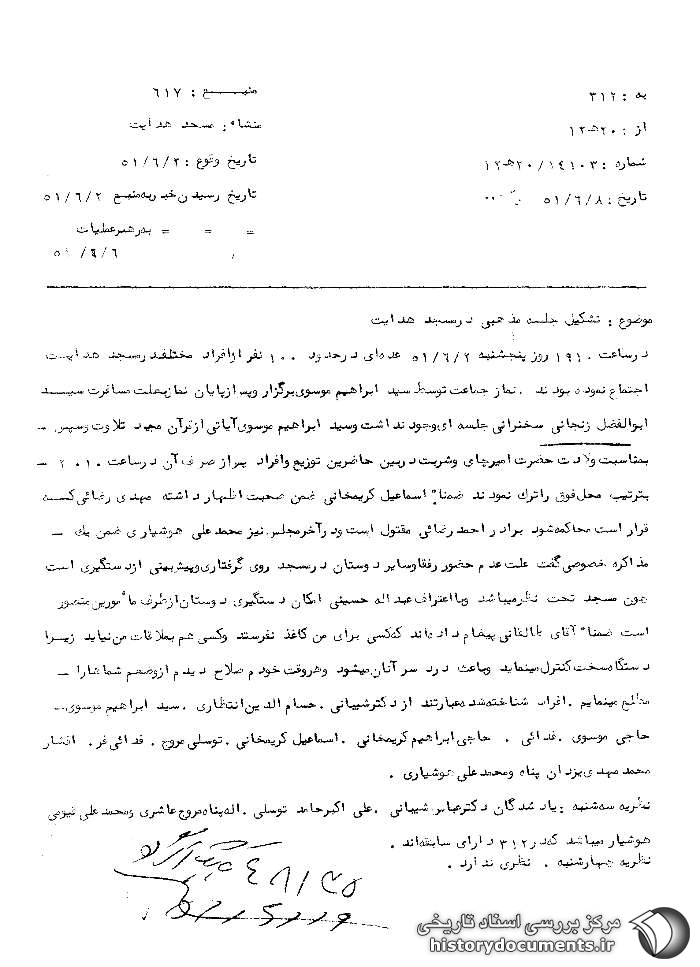 به : ۳۱۲
از : ۲۰هـ۱۲
شماره : ۱۴۱۰۳/۲۰هـ۱۲
تاریخ : ۵۱/۶/۸
منبع : ۶۱۷
منشاء : مسجد هدایت
تاریخ وقوع : ۵۱/۶/۲
تاریخ رسیدن خبر به منبع ۵۱/۶/۲
= = = به رهبر عملیات
۵۱/۶/۶
موضوع : تشکیل جلسه مذهبی در مسجد هدایت
در ساعت ۱۹۱۰ روز پنجشنبه ۵۱/۶/۲ عده‌ای در حدود ۱۰۰ نفر از افراد مختلف در مسجد هدایت
اجتماع نموده بودند . نماز جماعت توسط سید ابراهیم موسوی برگزار و پس از پایان نماز بعلت مسافرت سید
ابوالفضل زنجانی سخنرانی جلسه ای وجود نداشت و سید ابراهیم موسوی آیاتی از قرآن مجید تلاوت و سپس –
بمناسبت ولادت حضرت امیر چای و شربت در بین حاضرین توزیع و افراد پس از صرف آن در ساعت ۲۰۱۰ –
بترتیب محل فوق را ترک نمودند ضمنا" اسماعیل کریمخانی ضمن صحبت اظهار داشته مهدی رضائی که
قرار است محاکمه شود برادر احمد رضائی مقتول است و در آخر مجلس نیز محمد علی هوشیاری ضمن یک –
مذاکره خصوصی گفت علت عدم حضور رفقا و سایر دوستان در مسجد روی گرفتاری و پیش بینی از دستگیری است
چون مسجد تحت نظر میباشد و با اعتراف عبداله حسینی امکان دستگیری دوستان از طرف مأمورین متصور
است ضمنا" آقای طالقانی پیغام داده‌اند که کسی برای من کاغذ نفرستد و کسی هم بملاقات من نیاید زیرا
دستگاه سخت کنترل مینماید و باعث درد سر آنان میشود و هر وقت خودم صلاح دیدم از وضعم شماها را –
مطلع مینمایم . افراد شناخته شده عبارتند از دکتر شیبانی . حسام الدین انتظاری . سید ابراهیم موسوی –
حاجی موسوی . فدائی . حاجی ابراهیم کریمخانی . اسماعیل کریمخانی . توسلی مروج . فدائی فر . افشار
محمد مهدی یزدان پناه و محمد علی هوشیاری .
نظریه سه‌شنبه : یاد شدگان دکتر عباس شیبانی . علی اکبر حامد توسلی . اله پناه مروج عاشری و محمد علی قیومی
هوشیار میباشد که در ۳۱۲ دارای سابقه‌اند .
نظریه چهارشنبه . نظری ندارد .
مرکز بررسی اسناد تاریخی
historydocuments.ir